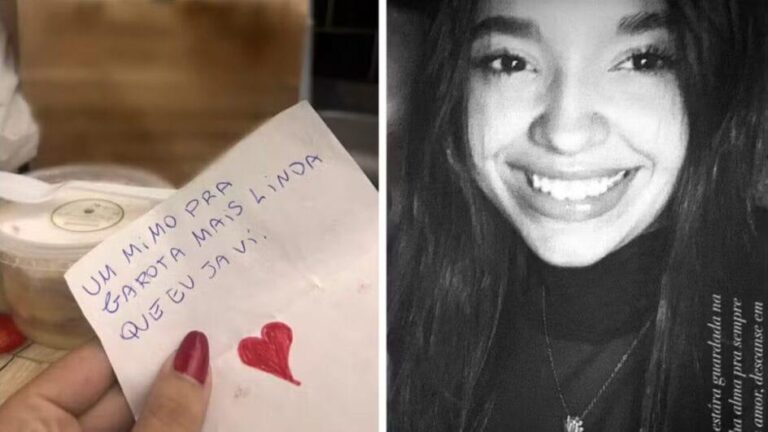 UM MIMO PRA
GAROTA MAIS LINDA
QUE EU JA VI.
estára guardada na
ha alma pra sempre
amor, descanse em